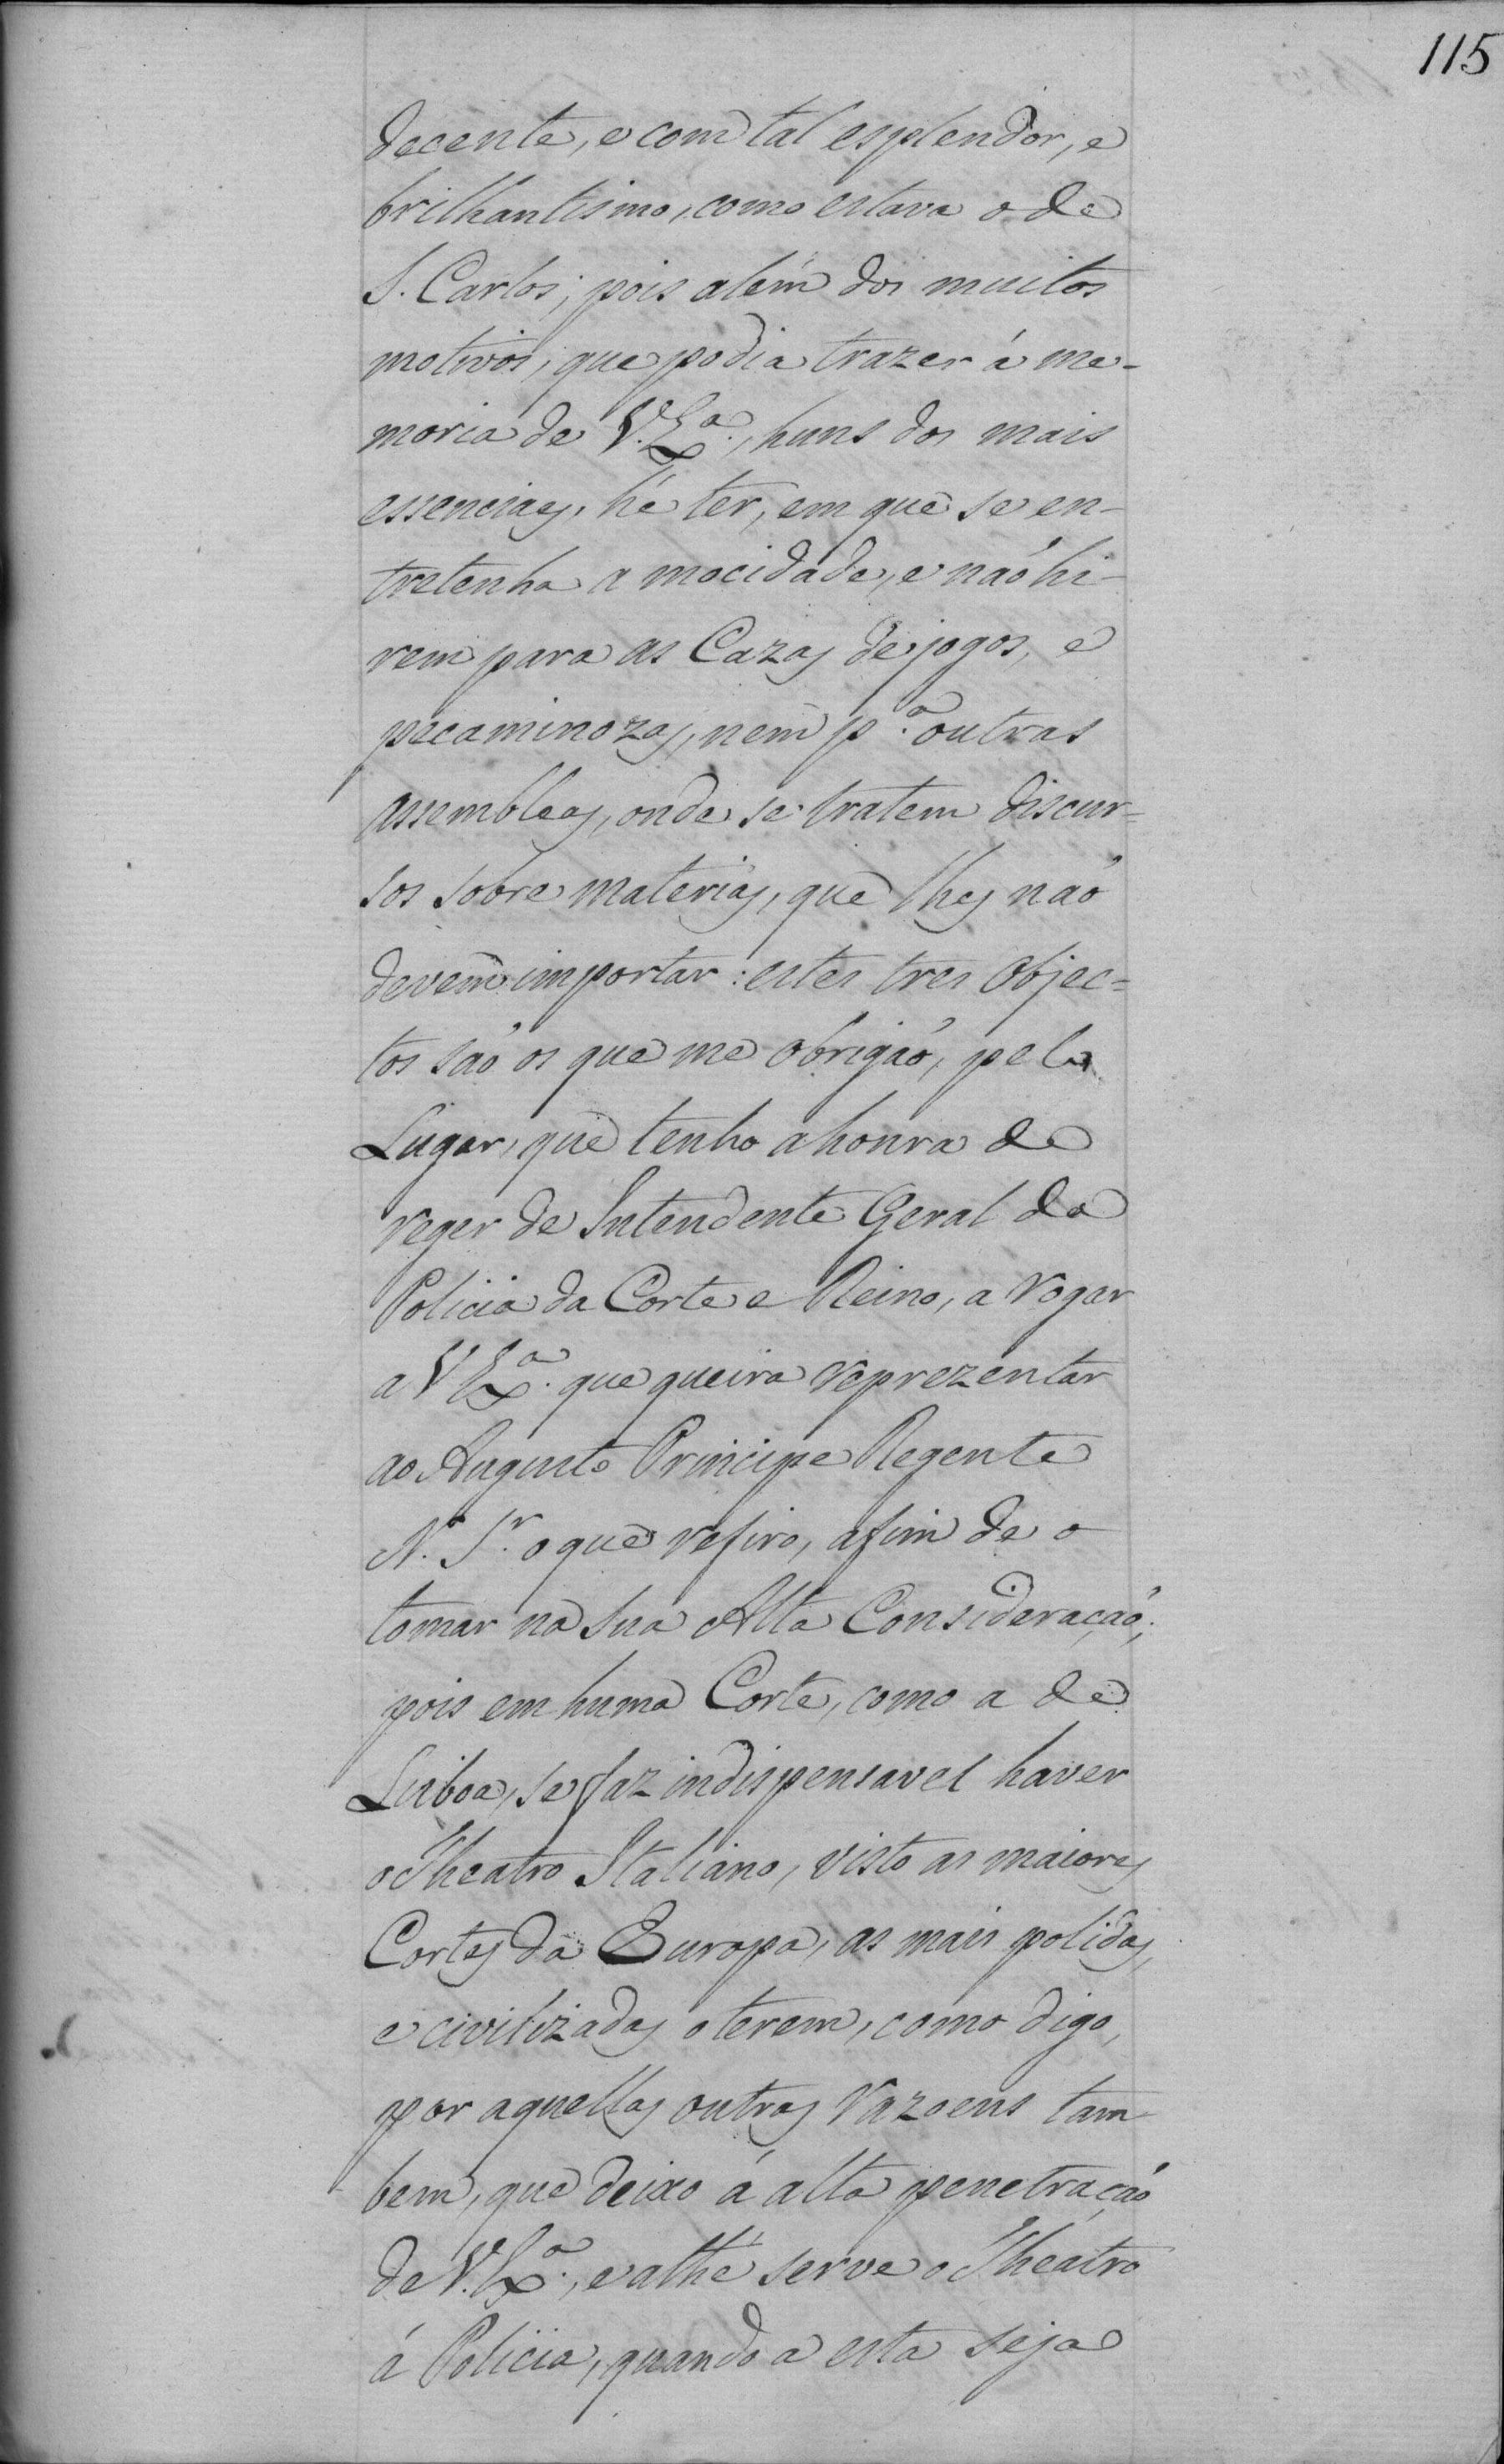 115
decente, e com tal esplendor, e
brilhantismo, como estava o de
S. Carlos; pois além dos muitos
motivos, que podia trazer á me-
moria de V. Exª., huns dos mais
essenciaes, hé ter, em que se en-
tretenha a mocidade, e naõ hi-
rem para as Cazas de jogos, e
pecaminozas, nem pª. outras
assembleas, onde se tratem discur=
sos sobre materias, que lhes naõ
devem importar: estes tres objec=
tos saõ os que me obrigaõ, pelo
Lugar, que tenho a honra de
reger de Intendente Geral da
Policia da Corte e Reino, a rogar
a V Exª. que queira reprezentar
ao Augusto Principe Regente
N. Sr. o que refiro, afim de o
tomar na sua Alta Consideraçaõ;
pois em huma Corte, como a de
Lisboa, se faz indispensavel haver
o Theatro Italiano, visto as maiores
Cortes da Europa, as mais polidas,
e civilizadas o terem, como digo,
por aquellas outras razoens tam
bem, que deixo á alta penetraçaõ
de V. Exª., e athé serve o Theatro
á Policia, quando a esta seja